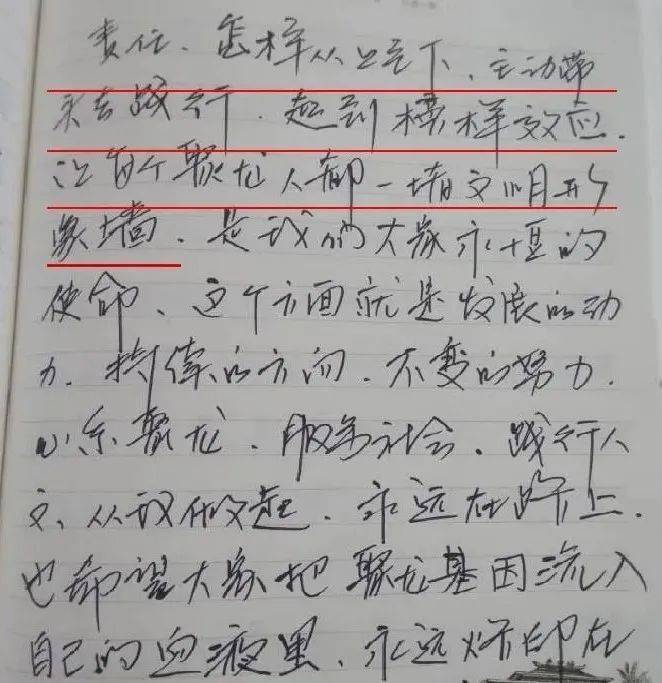 责任、怎样从上至下、主动带
头去践行、起到模样效应.
让每个聚龙人都一堵文明形
象墙、是我们大家永恒的
使命、这个方面就是发展的动
力、持续的方向、不变的努力.
山东聚龙、服务社会、践行人
文、从我做起、永远在路上.
也希望大家把聚龙基因流入
自己的血液里、永远烙印在